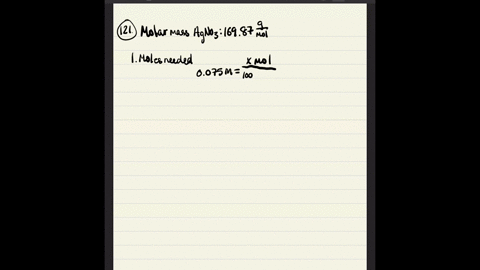 121 Molar mass AgNO3: 169.87 g/mol
1. Moles needed
0.075M = x mol / 100